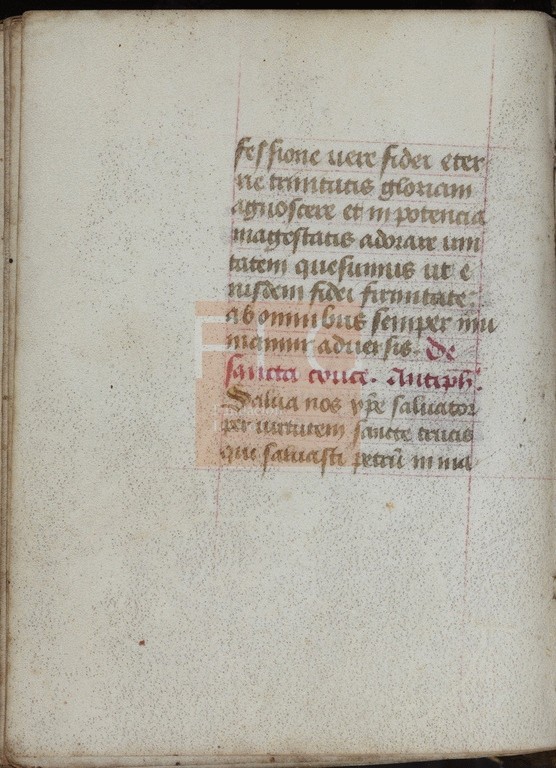 fessione uere fidei eter
ne trinitatis gloriam
agnoscere et in potencia
magestatis adorare uni
tatem quesumus ut e
iusdem fidei firmitate
ab omnibus semper mu
niamur aduersis. De
sancta cruce. Antiph.
Salua nos xp̄e saluator
per uirtutem sancte crucis
qui saluasti petrū in ma